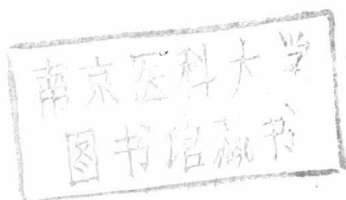 南京医科大学
图书馆藏书